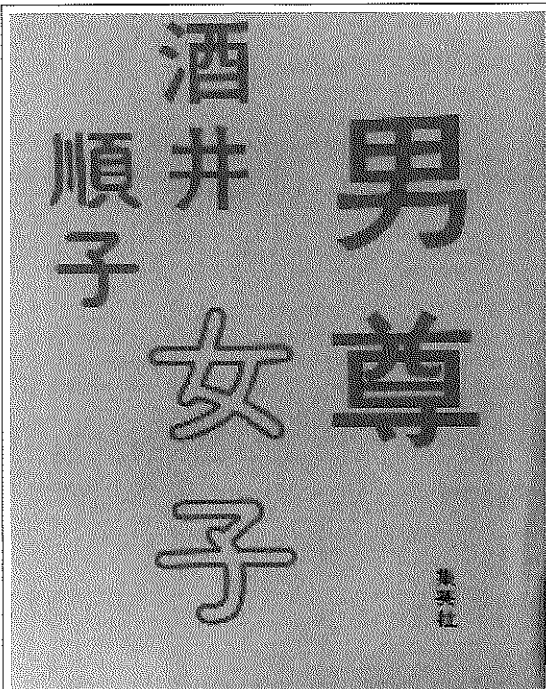 男尊
女子
酒井
順子
集英社